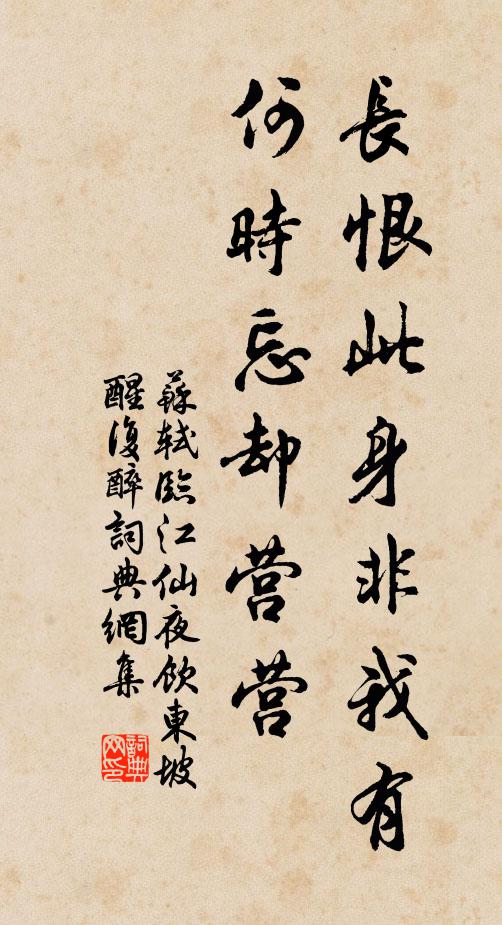 長恨此身非我有
何時忘却营营
蘇軾臨江仙夜飲東坡
醒復醉詞典網集
詞典
网印